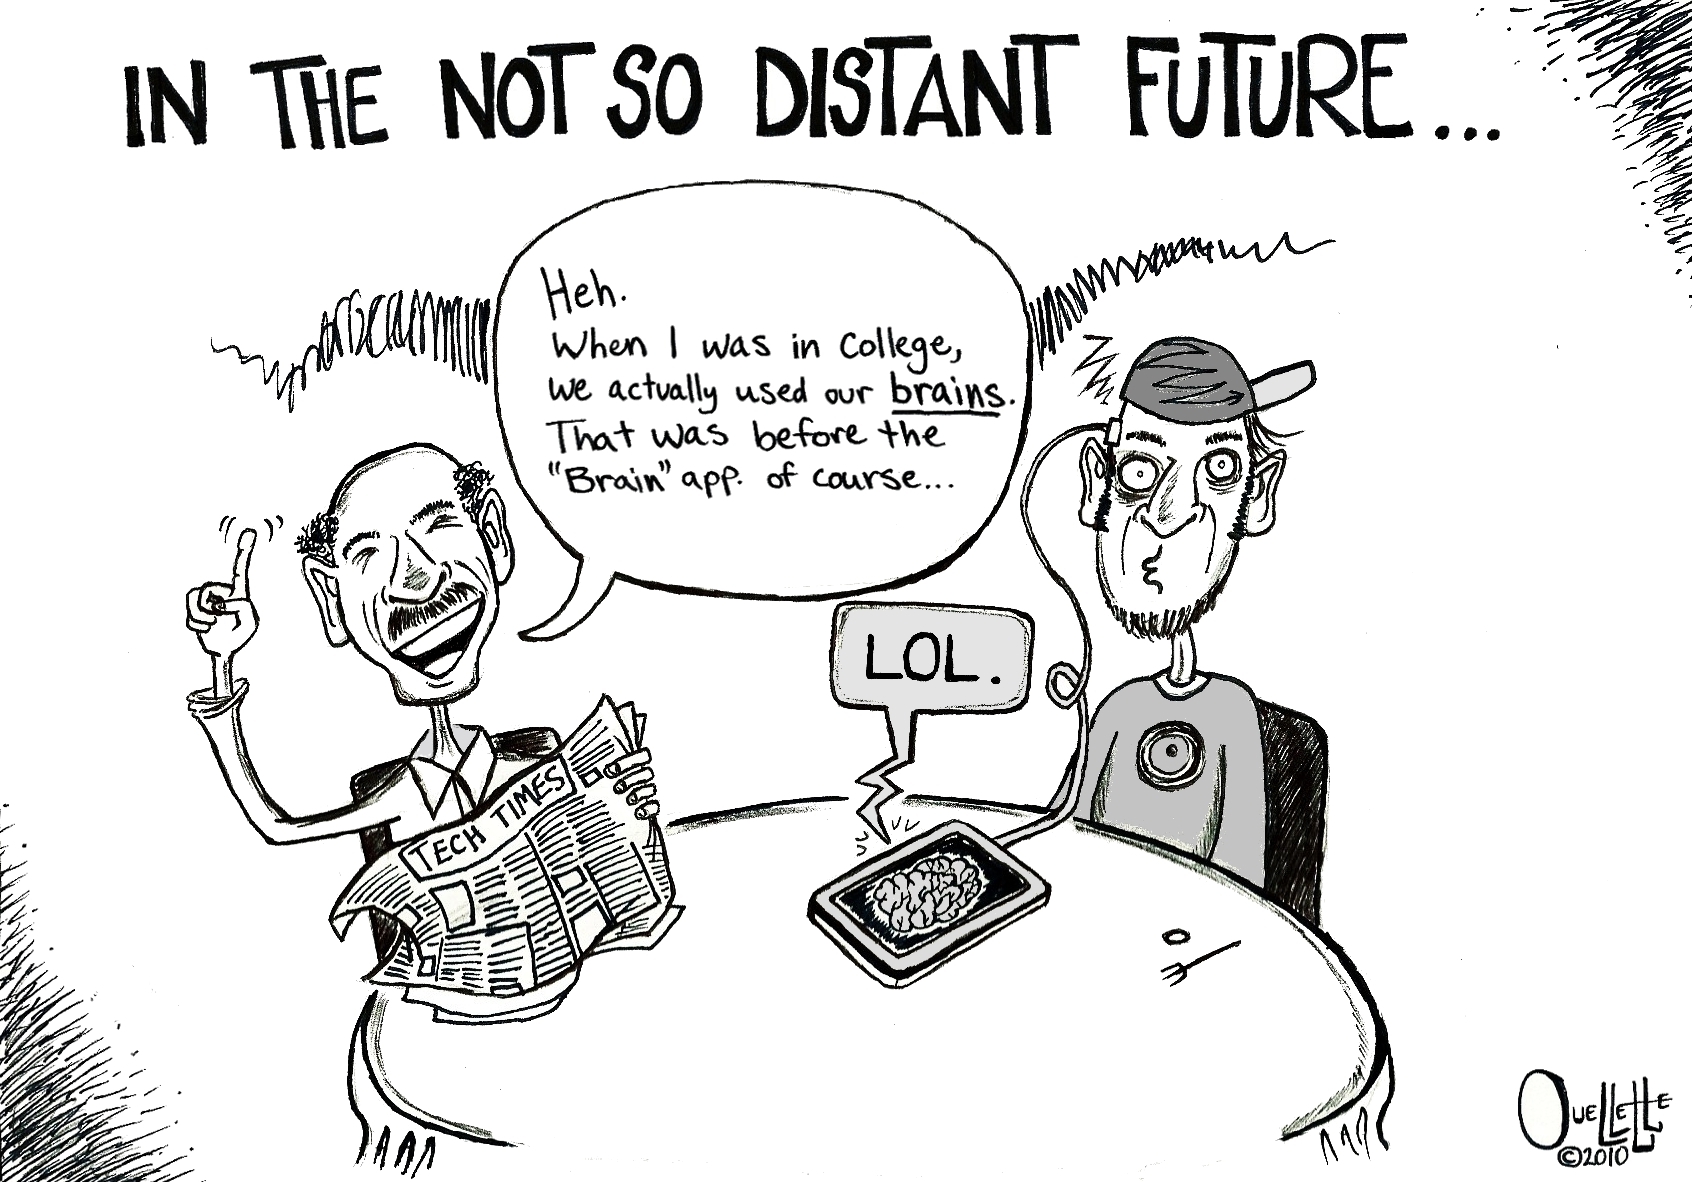 IN THE NOT SO DISTANT FUTURE...
Heh.
When I was in College,
we actually used our brains.
That was before the
"Brain" app. of course...
LOL.
TECH TIMES
OUELLETTE
©2010